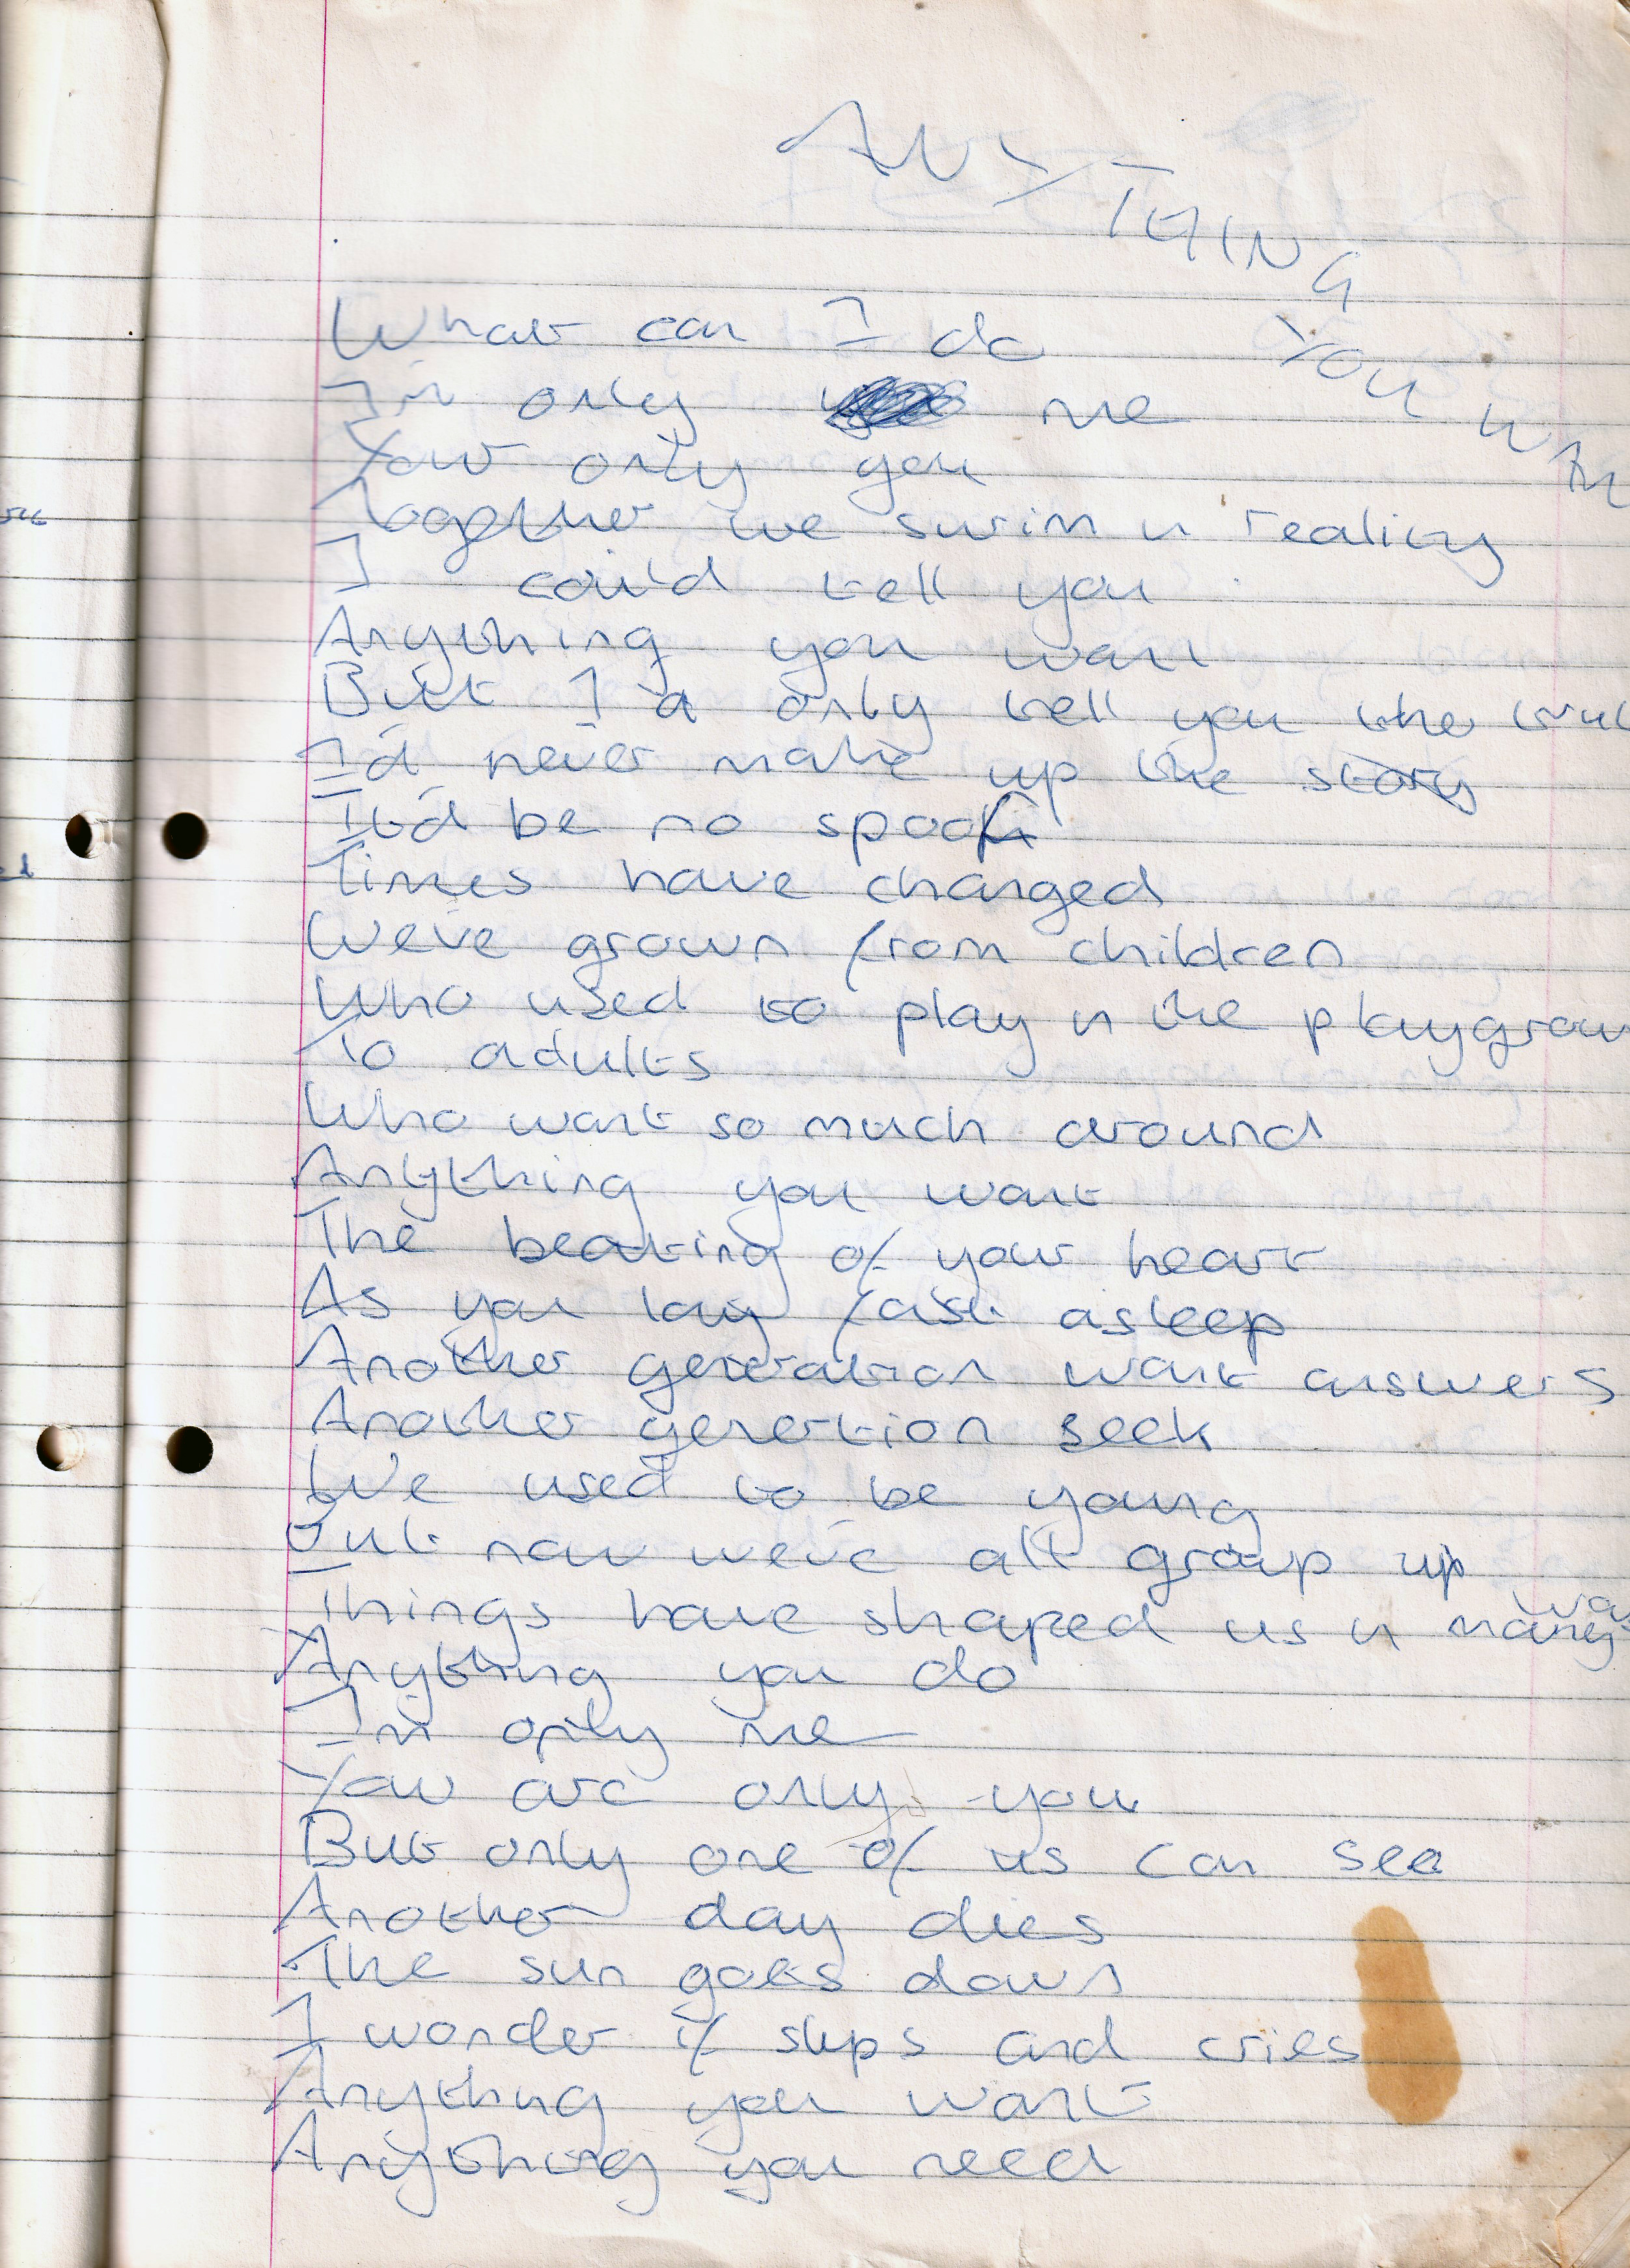 ANYTHING YOU WAN
What can I do
I'm only me
Your only you
Together we swim in reality
I could tell you
Anything you want
But I'd only tell you the trut
I'd never make up the story
It'd be no spoof
Times have changed
We've grown from children
Who used to play in the playgroun
To adults
Who want so much around
Anything you want
The beating of your heart
As you lay fast asleep
Another generation want answers
Another genertion seek
We used to be young
But now we've all group up
Things have shaped us in many way
Anything you do
I'm only me
You are only you
But only one of us can see
Another day dies
The sun goes down
I wonder if slips and cries
Anything you want
Anything you need